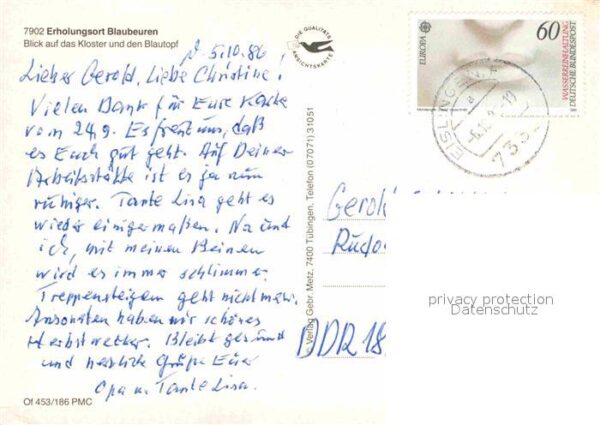 7902 Erholungsort Blaubeuren
Blick auf das Kloster und den Blautopf
5.10.86
Lieber Gerold, Liebe Christine!
Vielen Dank für Eure Karte
vom 24.9. Es freut uns, daß
es Euch gut geht. Auf Deiner
Arbeitsstätte ist es ja nun
ruhiger. Tante Lisa geht es
wieder einigermaßen. Na und
ich, mit meinen Beinen
wird es immer schlimmer
Treppensteigen geht nicht mehr.
Ansonsten haben wir schönes
Herbstwetter. Bleibt gesund
und herzliche Grüße Euer
Opa u. Tante Lisa.
Of 453/186 PMC
DIE QUALITÄTS
ANSICHTSKARTE
Verlag Gebr. Metz, 7400 Tübingen, Telefon (07071) 31051
EUROPA
60
WASSERREINHALTUNG
DEUTSCHE BUNDESPOST
EISLINGEN
733
Gerold
Rudo
DDR 18
privacy protection
Datenschutz